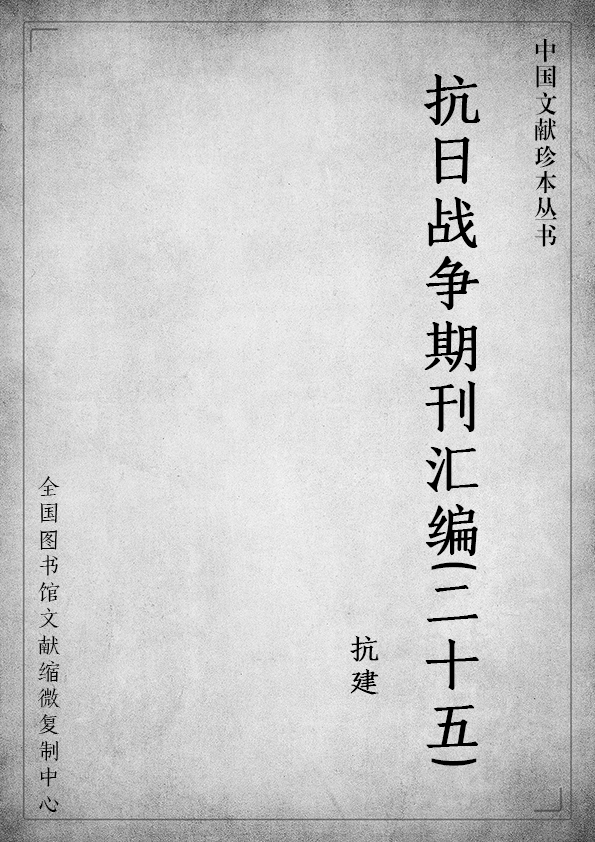 中国文献珍本丛书
抗日战争期刊汇编(二十五)
抗建
全国图书馆文献缩微复制中心